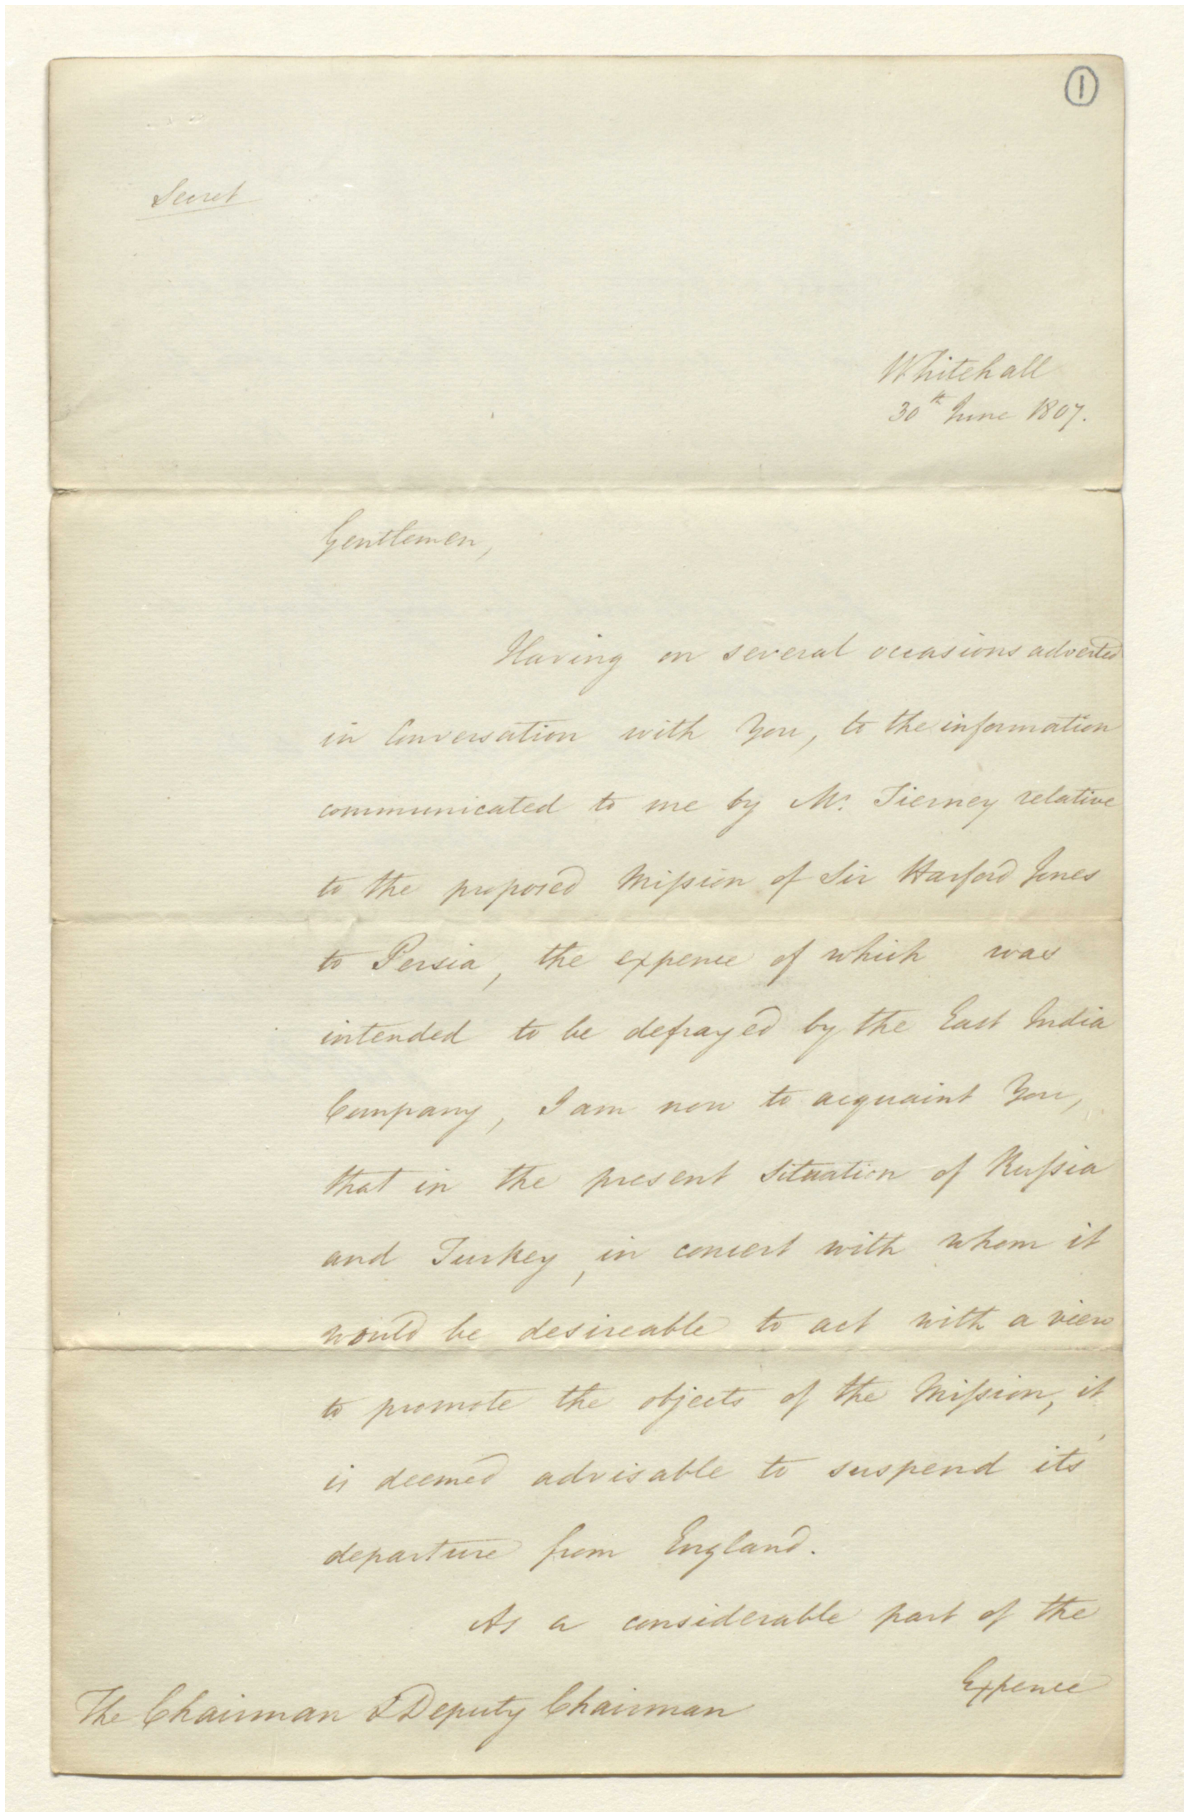 1
Secret
Whitehall
30th June 1807.
Gentlemen,
Having on several occasions adverted
in Conversation with You, to the information
communicated to me by Mr. Tierney relative
to the proposed Mission of Sir Harford Jones
to Persia, the expence of which was
intended to be defrayed by the East India
Company, I am now to acquaint You,
that in the present Situation of Russia
and Turkey, in concert with whom it
would be desireable to act with a view
to promote the objects of the Mission, it
is deemed advisable to suspend its
departure from England.
As a considerable part of the
Expence
The Chairman & Deputy Chairman